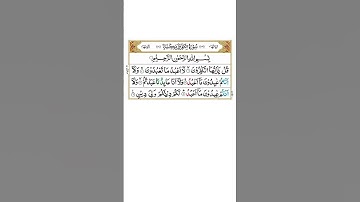 بِسْمِ اللّٰهِ الرَّحْمٰنِ الرَّحِيْمِ
قُلْ يٰۤاَيُّهَا الْكٰفِرُوْنَ ۙ لَاۤ اَعْبُدُ مَا تَعْبُدُوْنَ ۙ وَلَاۤ
اَنْتُمْ عٰبِدُوْنَ مَاۤ اَعْبُدُ ۚ وَلَاۤ اَنَا عَابِدٌ مَّا عَبَدْتُّمْ ۙ وَلَاۤ
اَنْتُمْ عٰبِدُوْنَ مَاۤ اَعْبُدُ ؕ لَكُمْ دِيْنُكُمْ وَلِيَ دِيْنِ